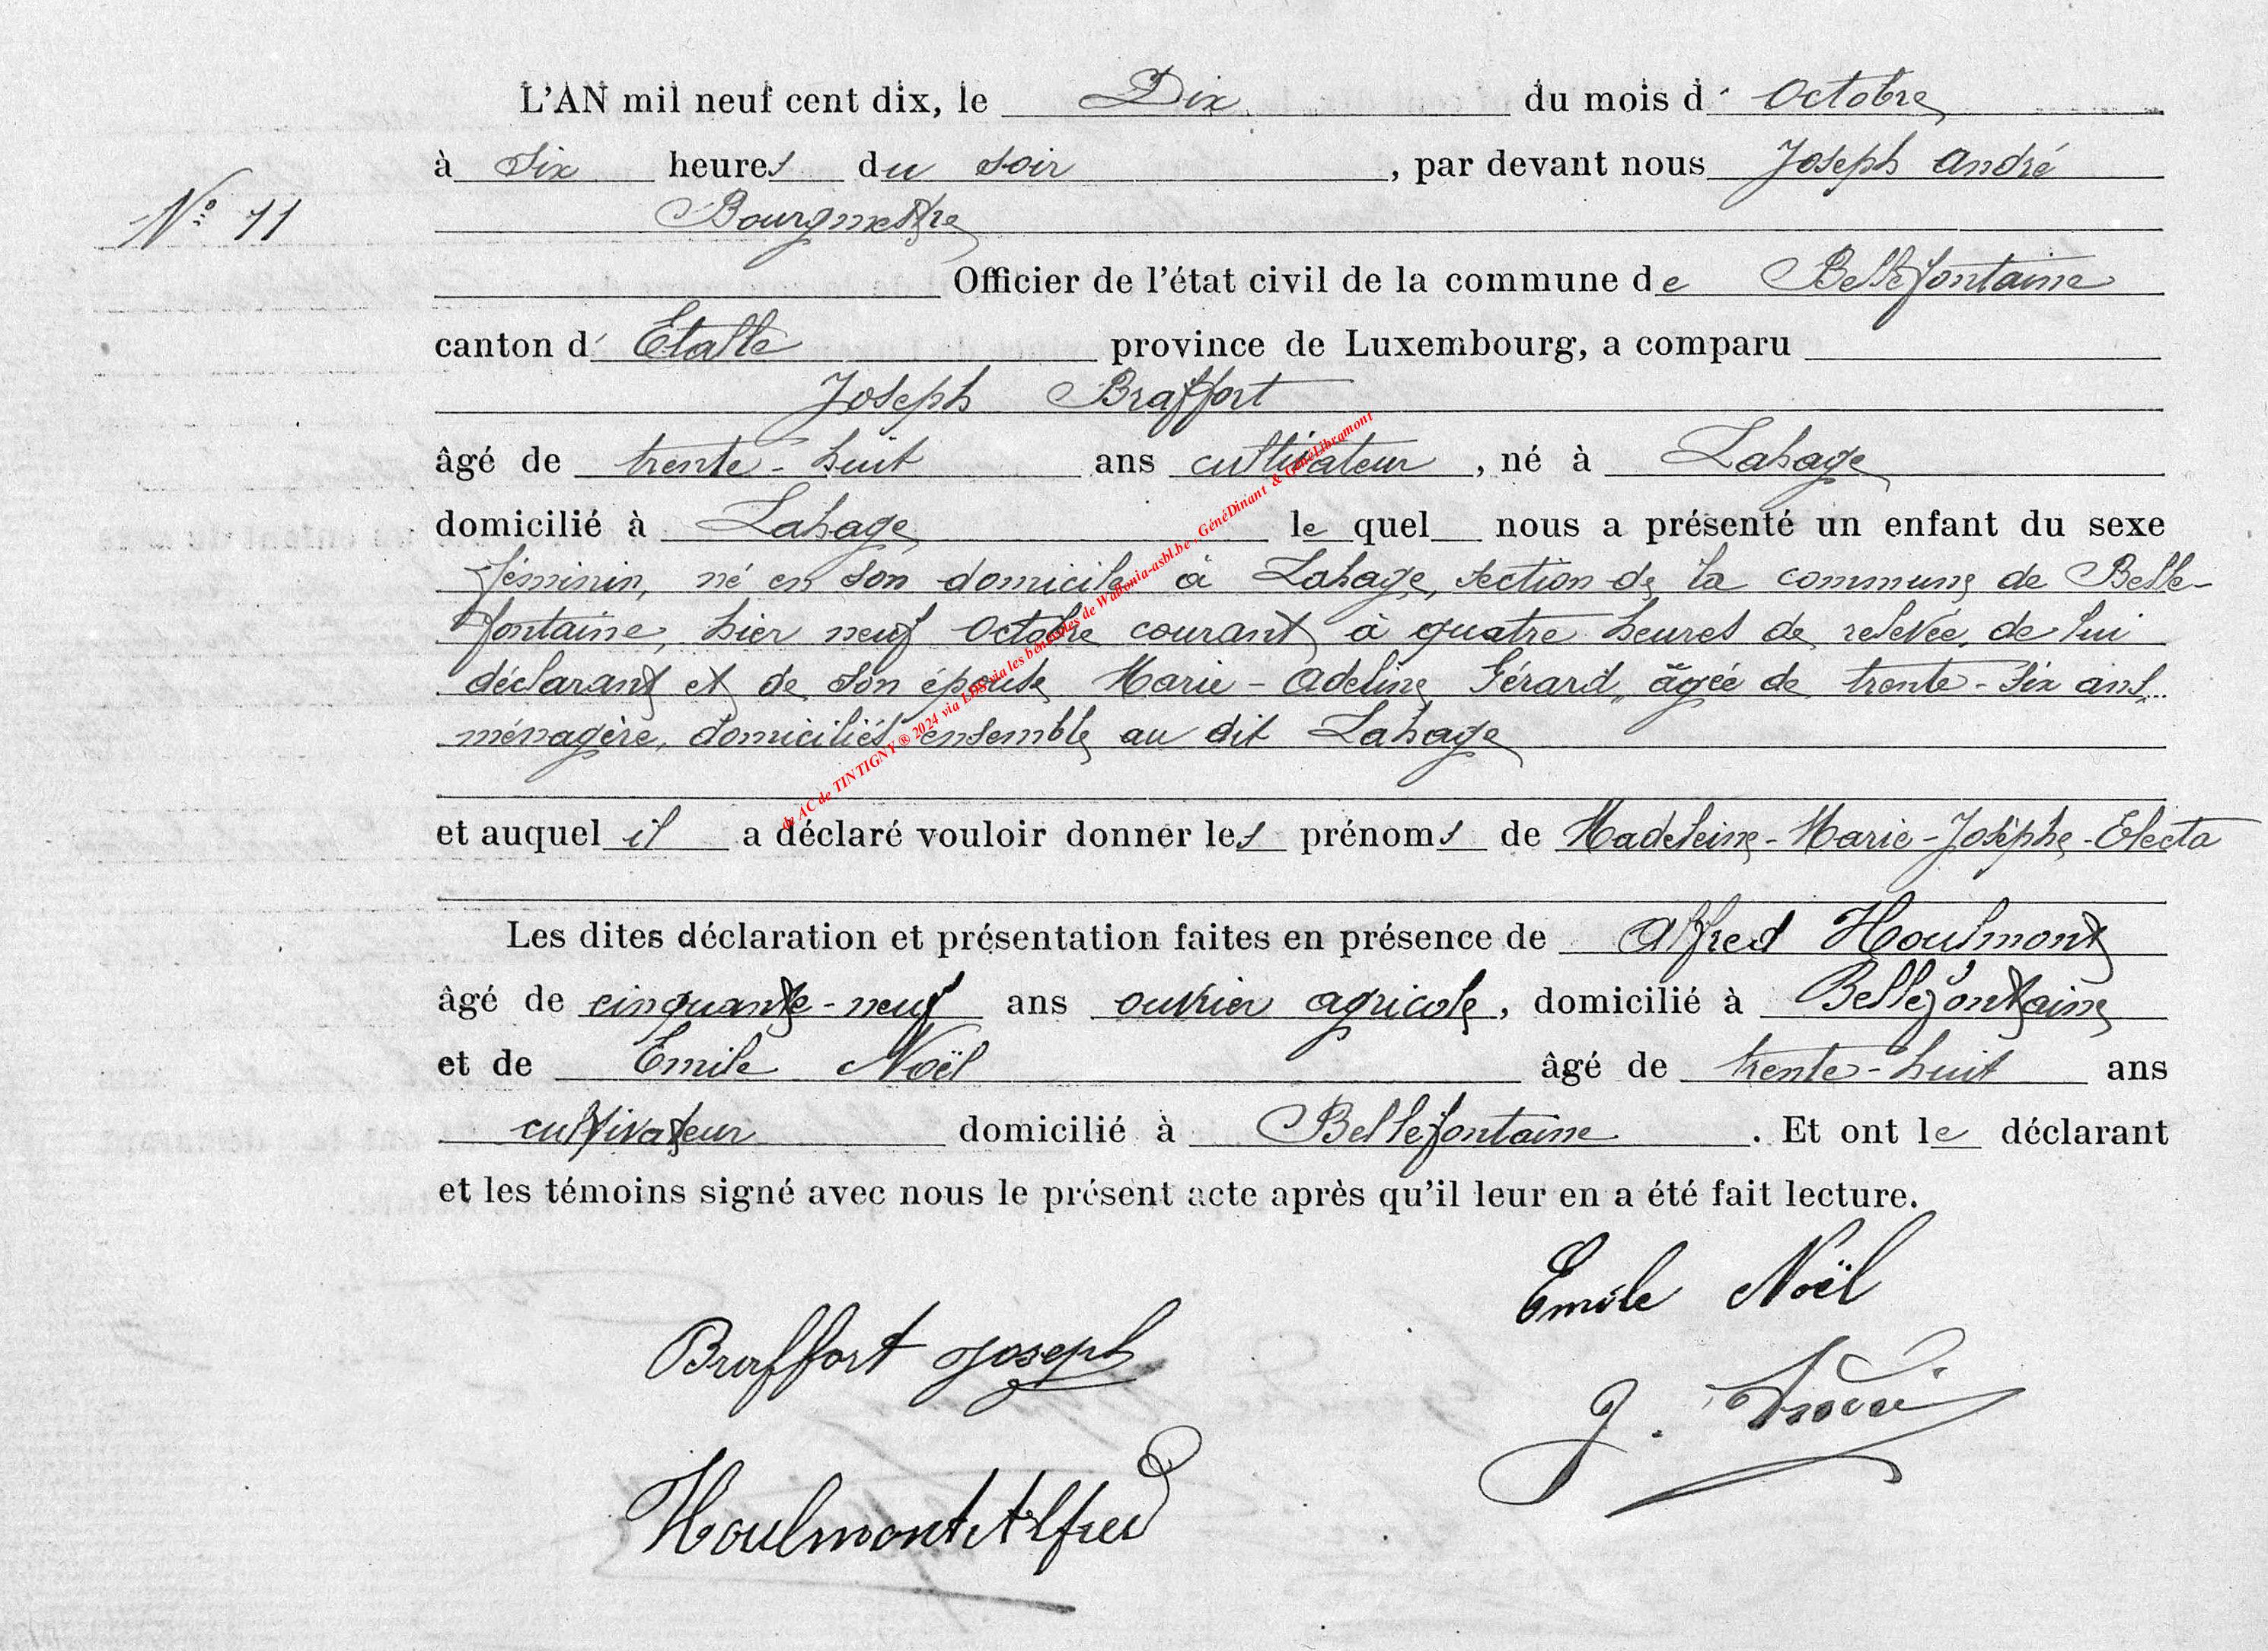 L'AN mil neuf cent dix, le Dix du mois d' Octobre
à Six heures du soir, par devant nous Joseph André
N° 11
Bourgmestre
Officier de l'état civil de la commune de Bellefontaine
canton d' Etalle province de Luxembourg, a comparu
Joseph Braffort
âgé de trente-huit ans cultivateur, né à Lahage
domicilié à Lahage le quel nous a présenté un enfant du sexe
féminin, né en son domicile à Lahage, section de la commune de Belle-
fontaine, hier neuf Octobre courant à quatre heures de relevée, de lui
déclarant et de son épouse Marie-Adeline Gérard, âgée de trente-six ans,
ménagère, domiciliés ensemble au dit Lahage
et auquel il a déclaré vouloir donner les prénoms de Madeleine-Marie-Josèphe-Electa
Les dites déclaration et présentation faites en présence de Alfred Houlmont
âgé de cinquante-neuf ans ouvrier agricole, domicilié à Bellefontaine
et de Emile Noël âgé de trente-huit ans
cultivateur domicilié à Bellefontaine. Et ont le déclarant
et les témoins signé avec nous le présent acte après qu'il leur en a été fait lecture.
Emile Noël
Braffort Joseph
J. André
Houlmont Alfred
du AC de TINTIGNY ® 2024 via LDS via les bénévoles de Wallonia-asbl.be, GénéDinant & GénéLibramont